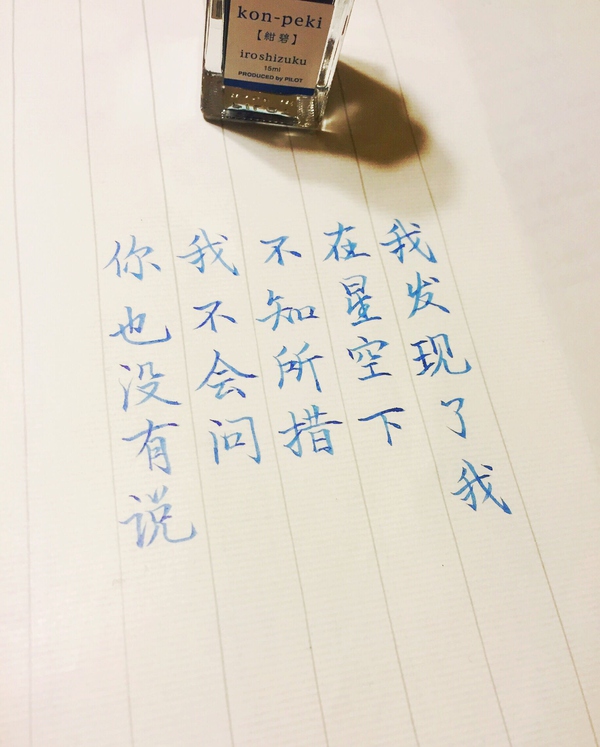 kon-peki
【紺碧】
iroshizuku
15ml
PRODUCED by PILOT
我发现了我
在星空下
不知所措
我不会问
你也没有说